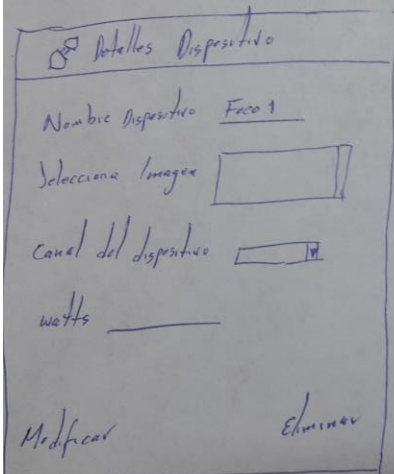 Detalles Dispositivo
Nombre Dispositivo Foco 1
Selecciona Imagen
Canal del dispositivo
watts
Modificar Eliminar